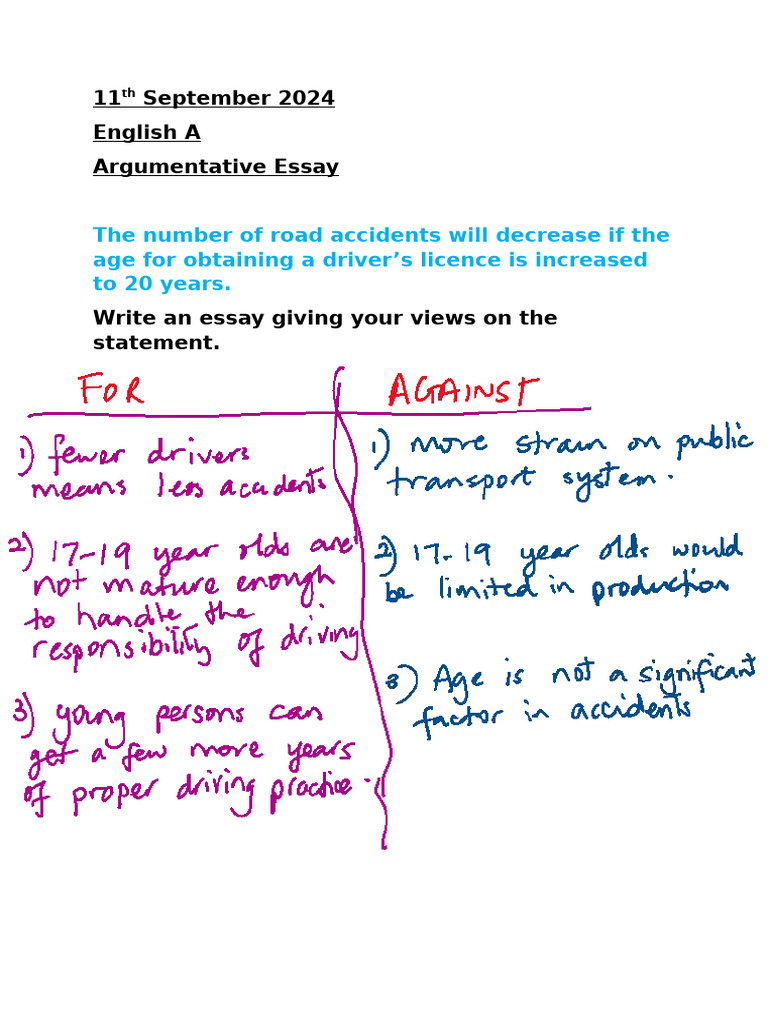 11th September 2024
English A
Argumentative Essay
The number of road accidents will decrease if the
age for obtaining a driver’s licence is increased
to 20 years.
Write an essay giving your views on the
statement.
FOR
1) fewer drivers
means less accidents
2) 17-19 year olds are
not mature enough
to handle the
responsibility of driving
3) young persons can
get a few more years
of proper driving practice.
AGAINST
1) more strain on public
transport system.
2) 17-19 year olds would
be limited in production
3) Age is not a significant
factor in accidents